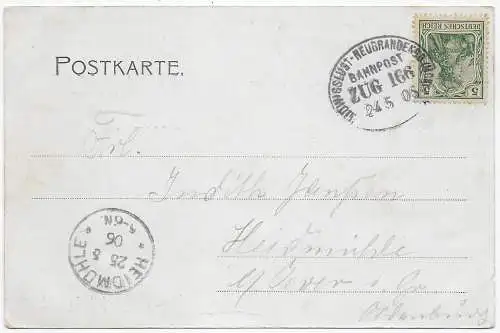 POSTKARTE.
LUDWIGSLUST-NEUBRANDENBURG
BAHNPOST
ZUG 166
24 5 06
DEUTSCHES REICH
5
Frl.
Judith Janßen
Heidmühle
b/ Jever i. Gr.
Oldenburg
HEIDMÜHLE
25 5
06
5-6N.